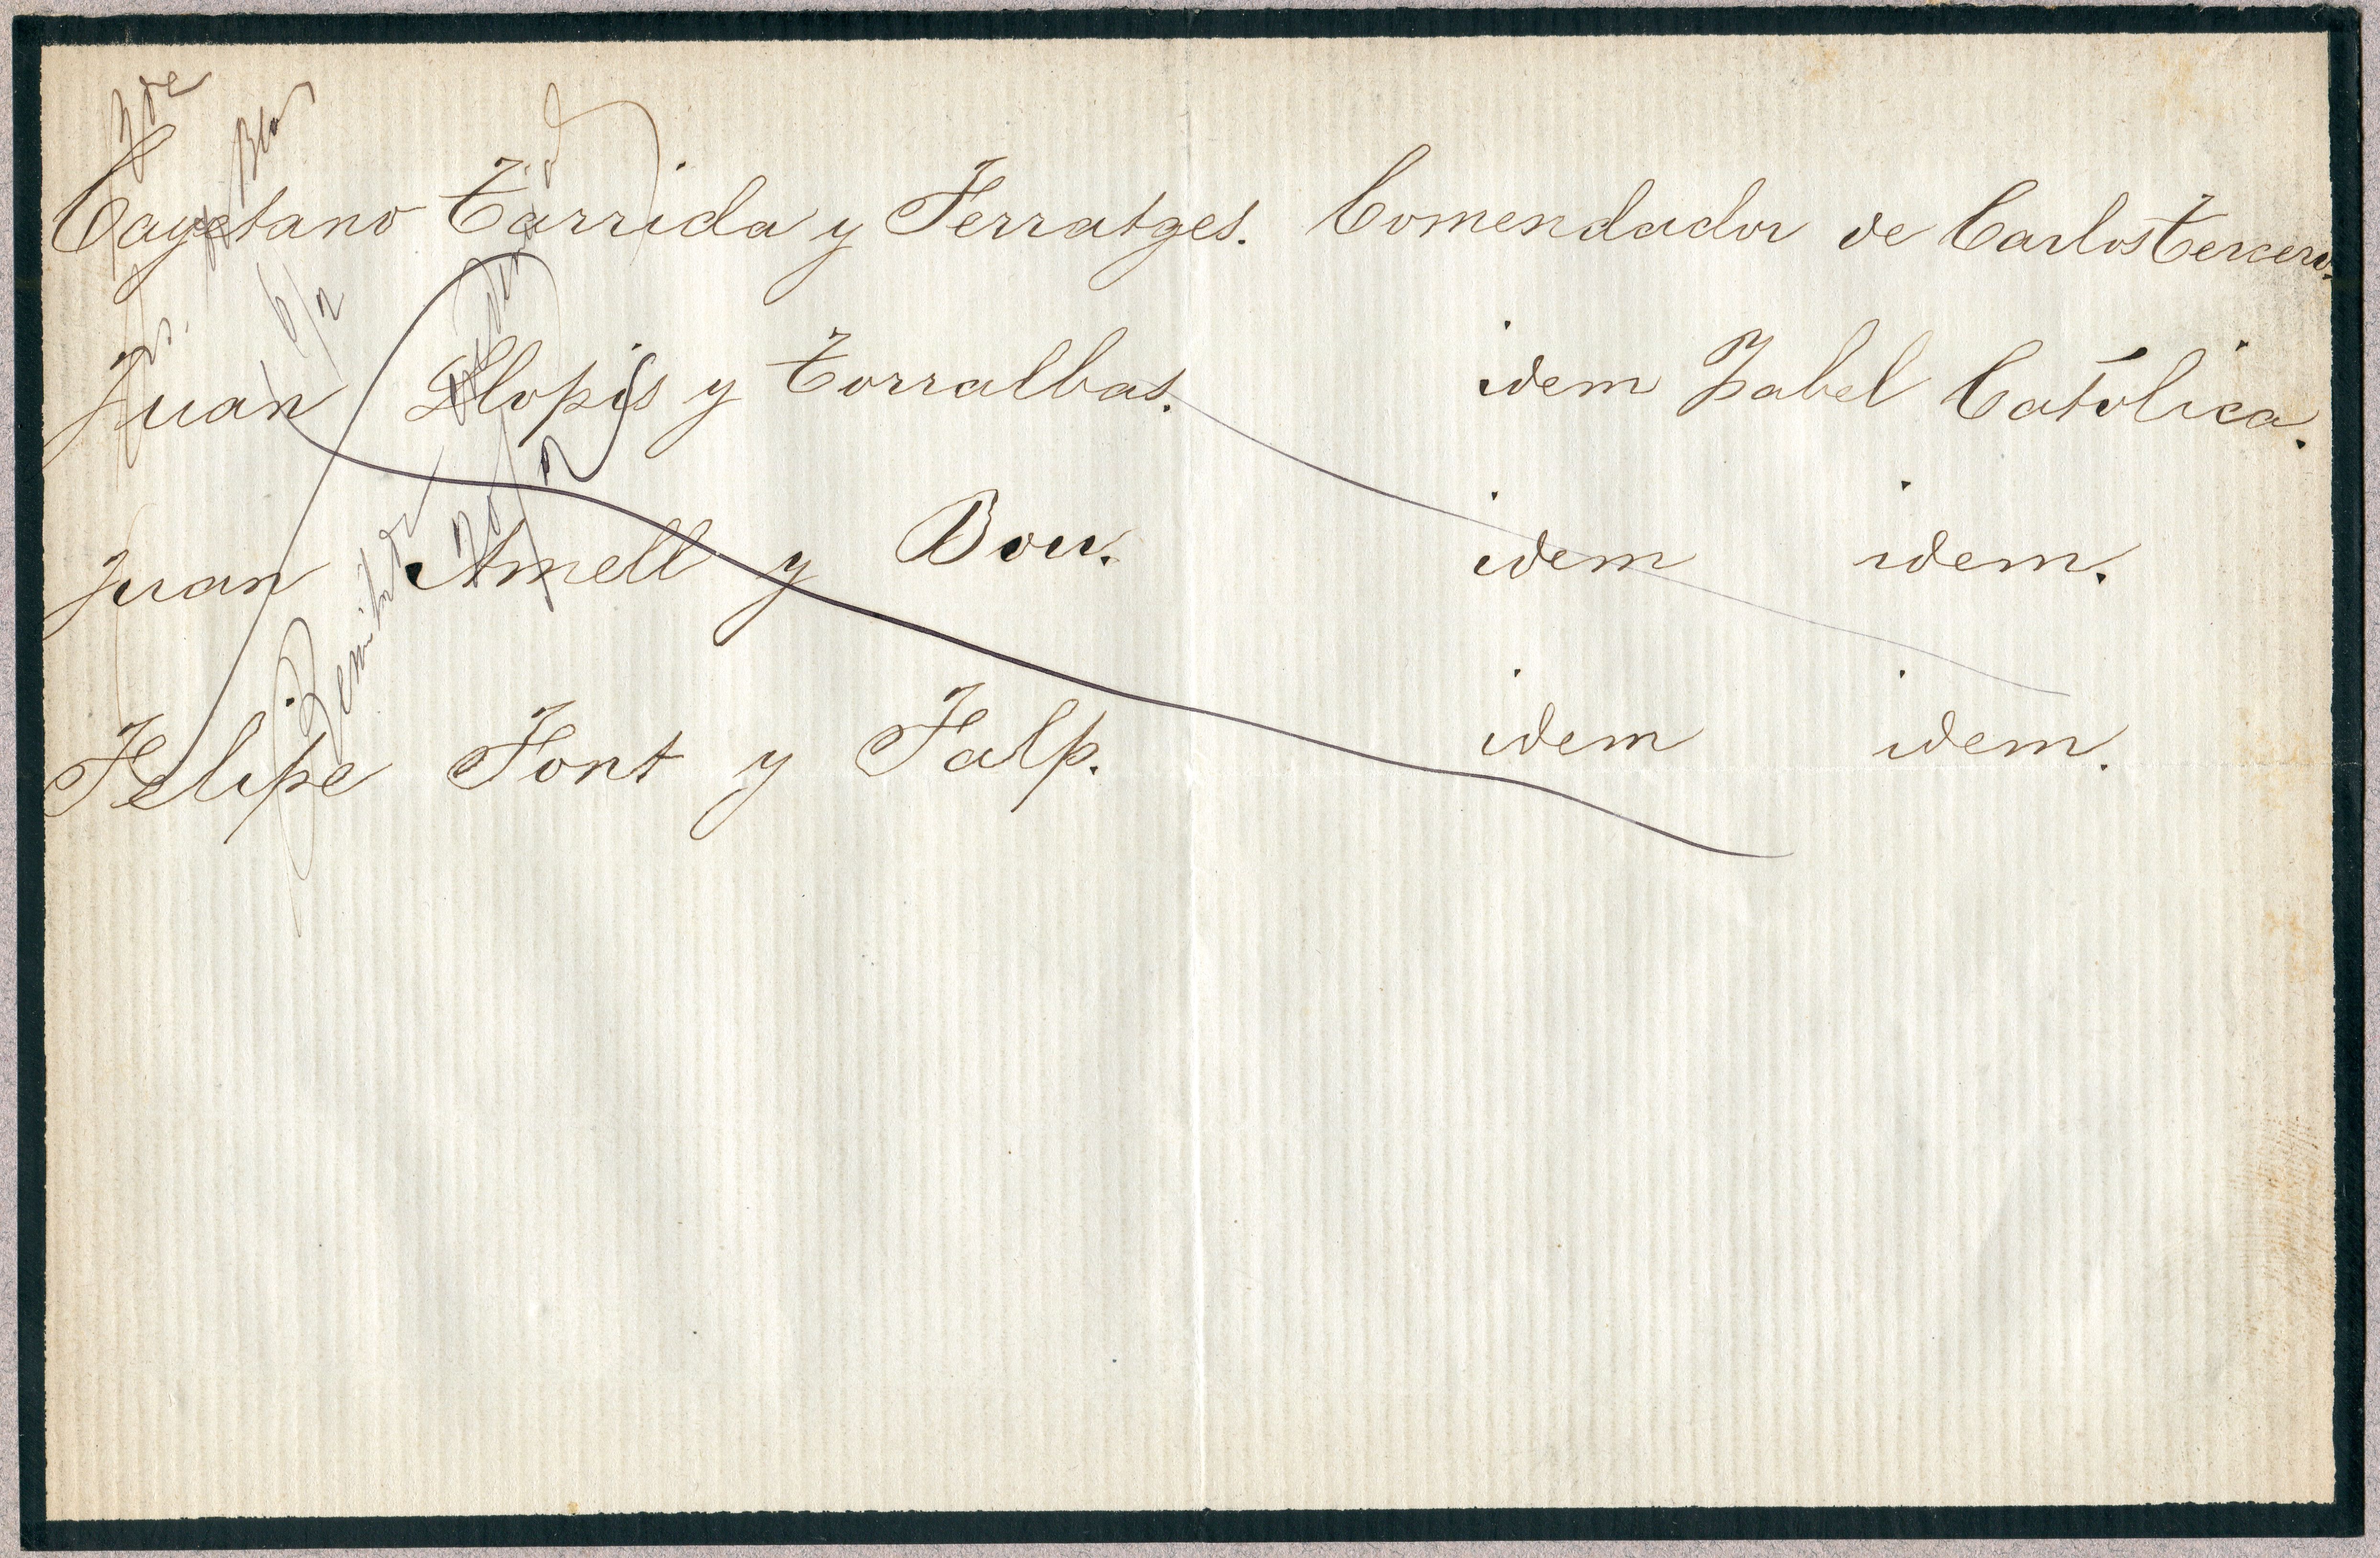 Cayetano Tarrida y Ferratges. Comendador de Carlos Tercero.
Juan Llopis y Torralbas. idem Isabel Católica.
Juan Amell y Bou. idem idem.
Felipe Font y Falp. idem idem.